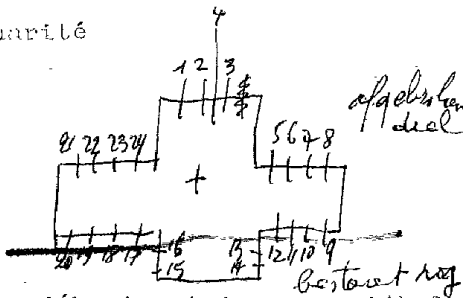 uarité
4
1 2 3
afgebroken
deel
21 22 23 24
5 6 7 8
20 19 18 17
16
15
13
14
12 11 10 9
bestaat nog